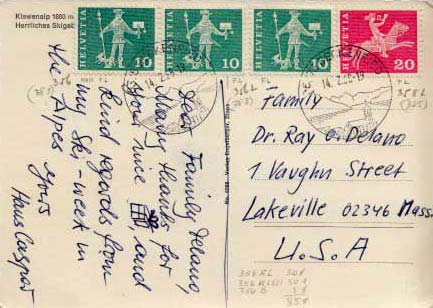 Klewenalp 1600 m
Herrliches Skigebi
HELVETIA 10
HELVETIA 10
HELVETIA 10
HELVETIA 20
Dear Family Delano,
Many thanks for
your nice and
kind regards from
my Ski-week in
the Alpes
yours
Hans Caspar
Family
Dr. Ray o. Delano
1 Vaughn Street
Lakeville 02346 Mass.
U.S.A